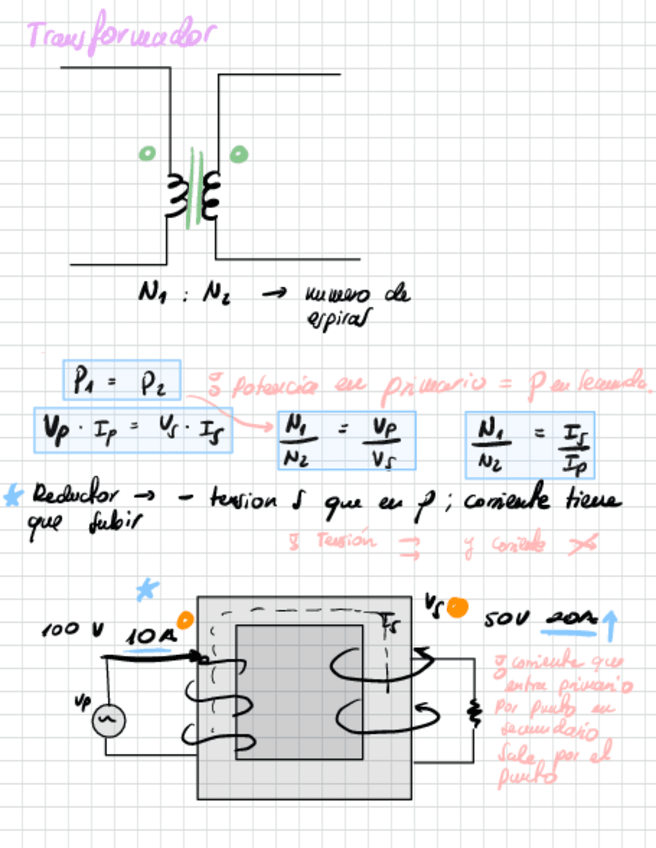 Transformador
N1 : N2 → numero de
espiras
P1 = P2
potencia en primario = P en secunda.
Vp · Ip = Vs · Is
N1/N2 = Vp/Vs
N1/N2 = Is/Ip
* Reductor → - tension s que en p ; corriente tiene
que subir
Tensión ⇉ y corriente
*
100 V 10A
Vp
Is
Vs
50V 20A ↑
corriente que
entra primario
por punto en
secundario
sale por el
punto